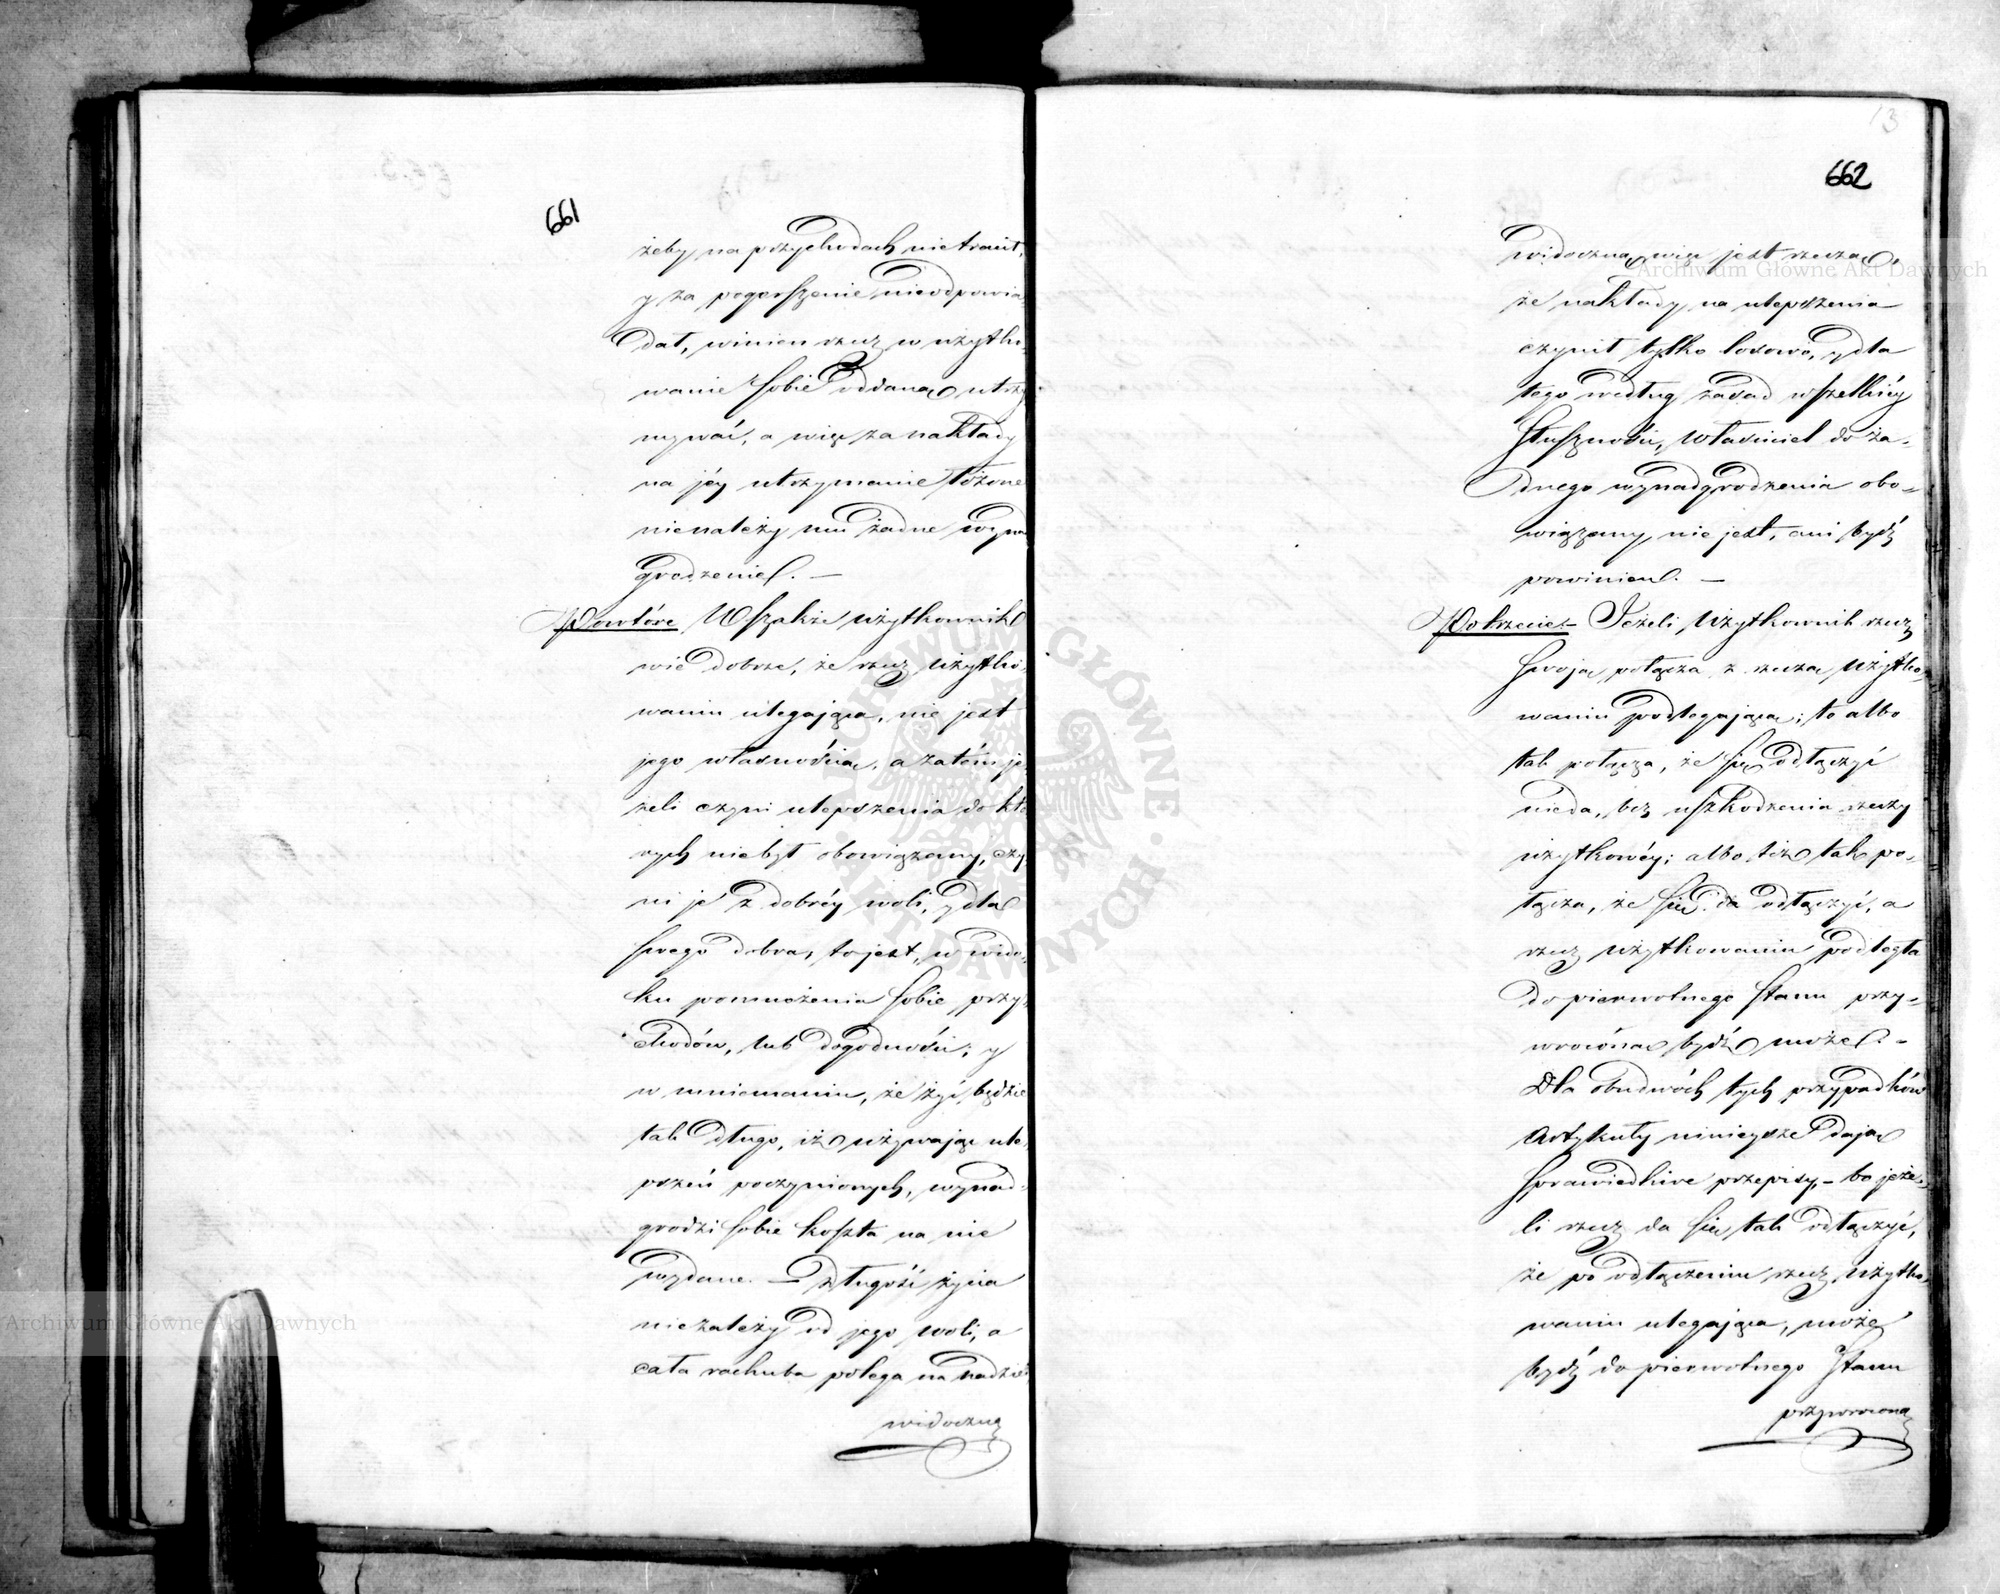 661
żeby na przychodach nietracił,
y za pogorszenie nieodpowia
dał, winien rzecz w użytko,
wanie sobie oddaną utrzy
mywać, a więc za nakłady
na jéy utrzymanie łożone
nienależy mu żadne wyna
grodzenie. —
Powtóre Wszakże użytkownik
wie dobrze, że rzecz użytko,
waniu ulegająca, nie jest
jego własnością, a zatém je,
żeli czyni ulepszenia do któ
rych niebył obowiązany, czy,
ni je z dobréy woli, y dla
swego dobra, to jest, w wido,
ku pomnożenia sobie przy,
chodów, lub dogodności; y
w mniemaniu, że żyć będzie
tak długo, iż używając ule,
pszeń poczynionych, wynad-
grodzi sobie koszta na nie
wydane. — Długość życia
niezależy od jego woli, a
cała rachuba polega na nadziei,
widoczną
13
662
widoczną więc jest rzeczą,
że nakłady na ulepszenia
czynił tylko losowo, y dla
tego według zasad wszelkiéy
słuszności, właściciel do ża-
dnego wynadgrodzenia obo-
wiązany nie jest, ani bydź
powinien. —
Potrzecie- Jeżeli użytkownik rzecz
swoją połącza z rzeczą użytko-
waniu podlegającą; to albo
tak połącza, że się odłączyć
nieda, bez uszkodzenia rzeczy
użytkowéy; albo też tak po-
łącza, że się da odłączyć, a
rzecz użytkowaniu podległa
do pierwotnego stanu przy-
wrócona bydź może. -
Dla obudwóch tych przypadków
Artykuły ninieysze dają
sprawiedliwe przepisy,- bo jeże-
li rzecz da się tak odłączyć,
że po odłączeniu rzecz użytko,
waniu ulegająca, może
bydź do pierwotnego stanu
przywrócona
Archiwum Główne Akt Dawnych
Archiwum Główne Akt Dawnych
ARCHIWUM GŁÓWNE · AKT DAWNYCH ·